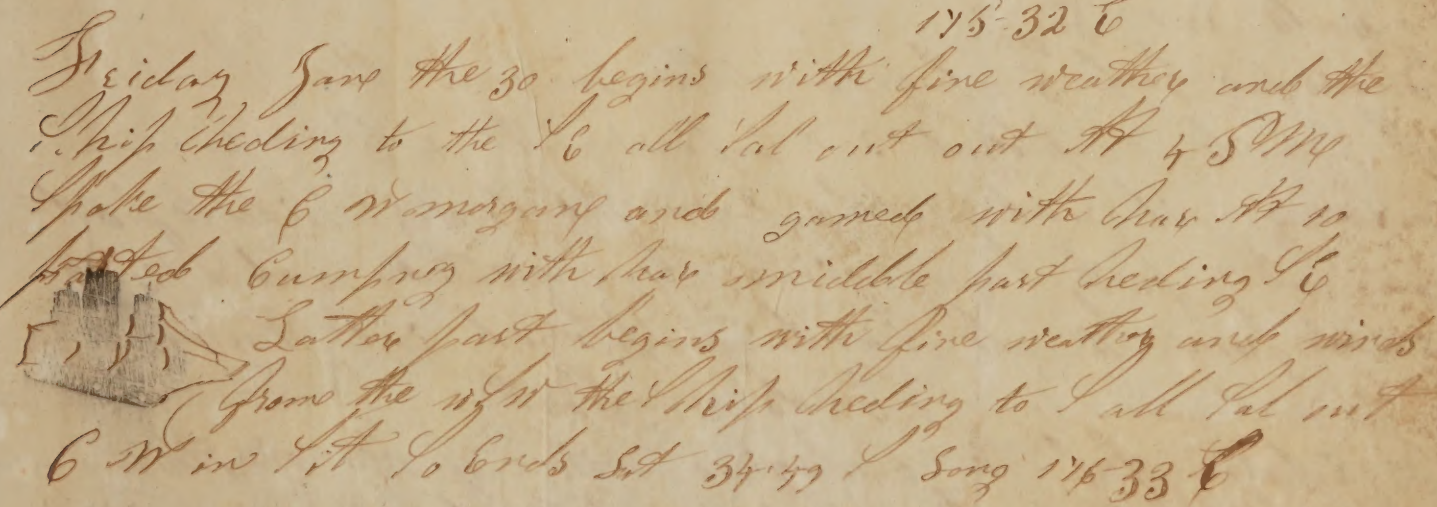 175-32 E
Friday Jane the 30 begins with fine weather and the
Ship heding to the SE all Sal out out At 4 PM
Spoke the C W morgane and gamed with har At 10
parted Cumpney with har middle part heding SE
Latter part begins with fine weather and winds
frome the W the Ship heding to S all Sal out
C W in Sit So Ends Lat 34-49 S Long 176-33 E